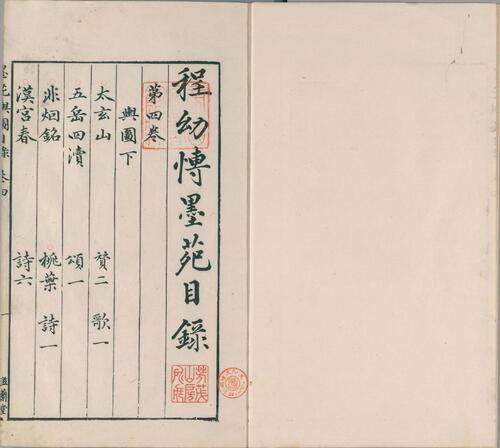 程幼博墨苑目錄
第四卷
輿圖下
太玄山 贊二 歌一
五岳四瀆 頌一
非烟銘 桃葉 詩一
漢宮春 詩六
墨苑輿圖目錄 卷四 一 滋蘭堂